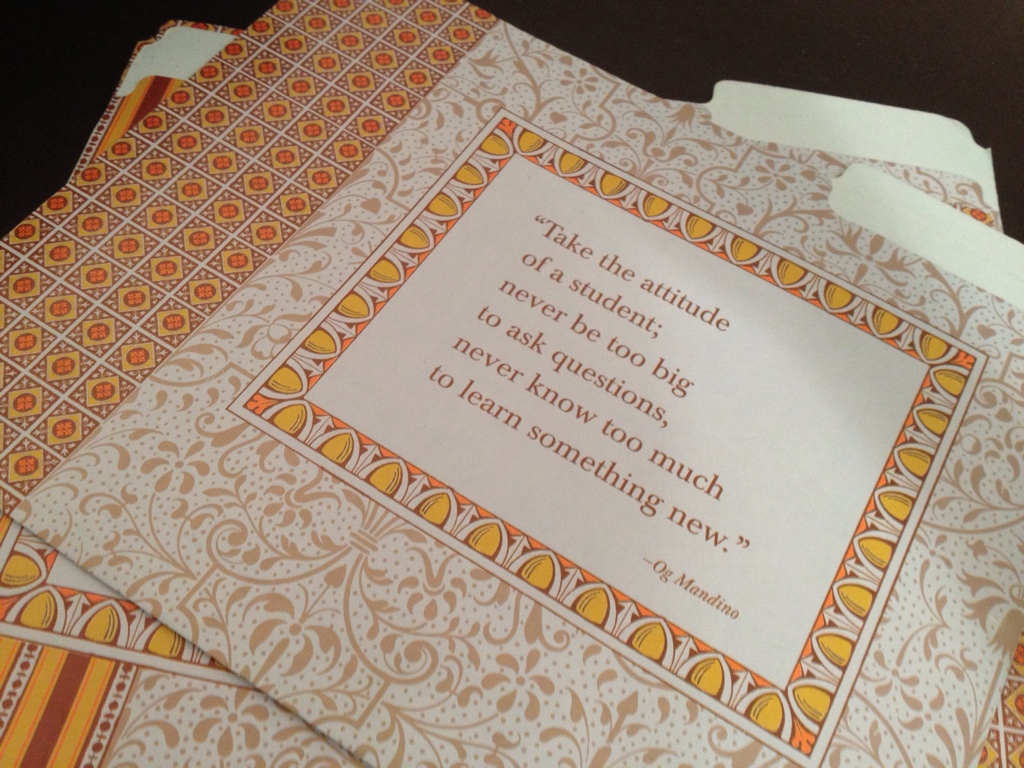 “Take the attitude
of a student;
never be too big
to ask questions,
never know too much
to learn something new.”
–Og Mandino